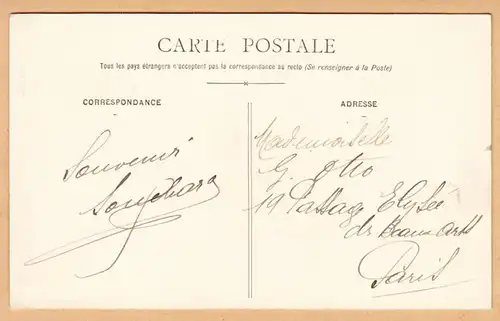 CARTE POSTALE
Tous les pays étrangers n'acceptent pas la correspondance au recto (Se renseigner à la Poste)
CORRESPONDANCE
ADRESSE
Souvenir
Mademoiselle
G. Otto
19 Passage Elysée
des Beaux Arts
Paris